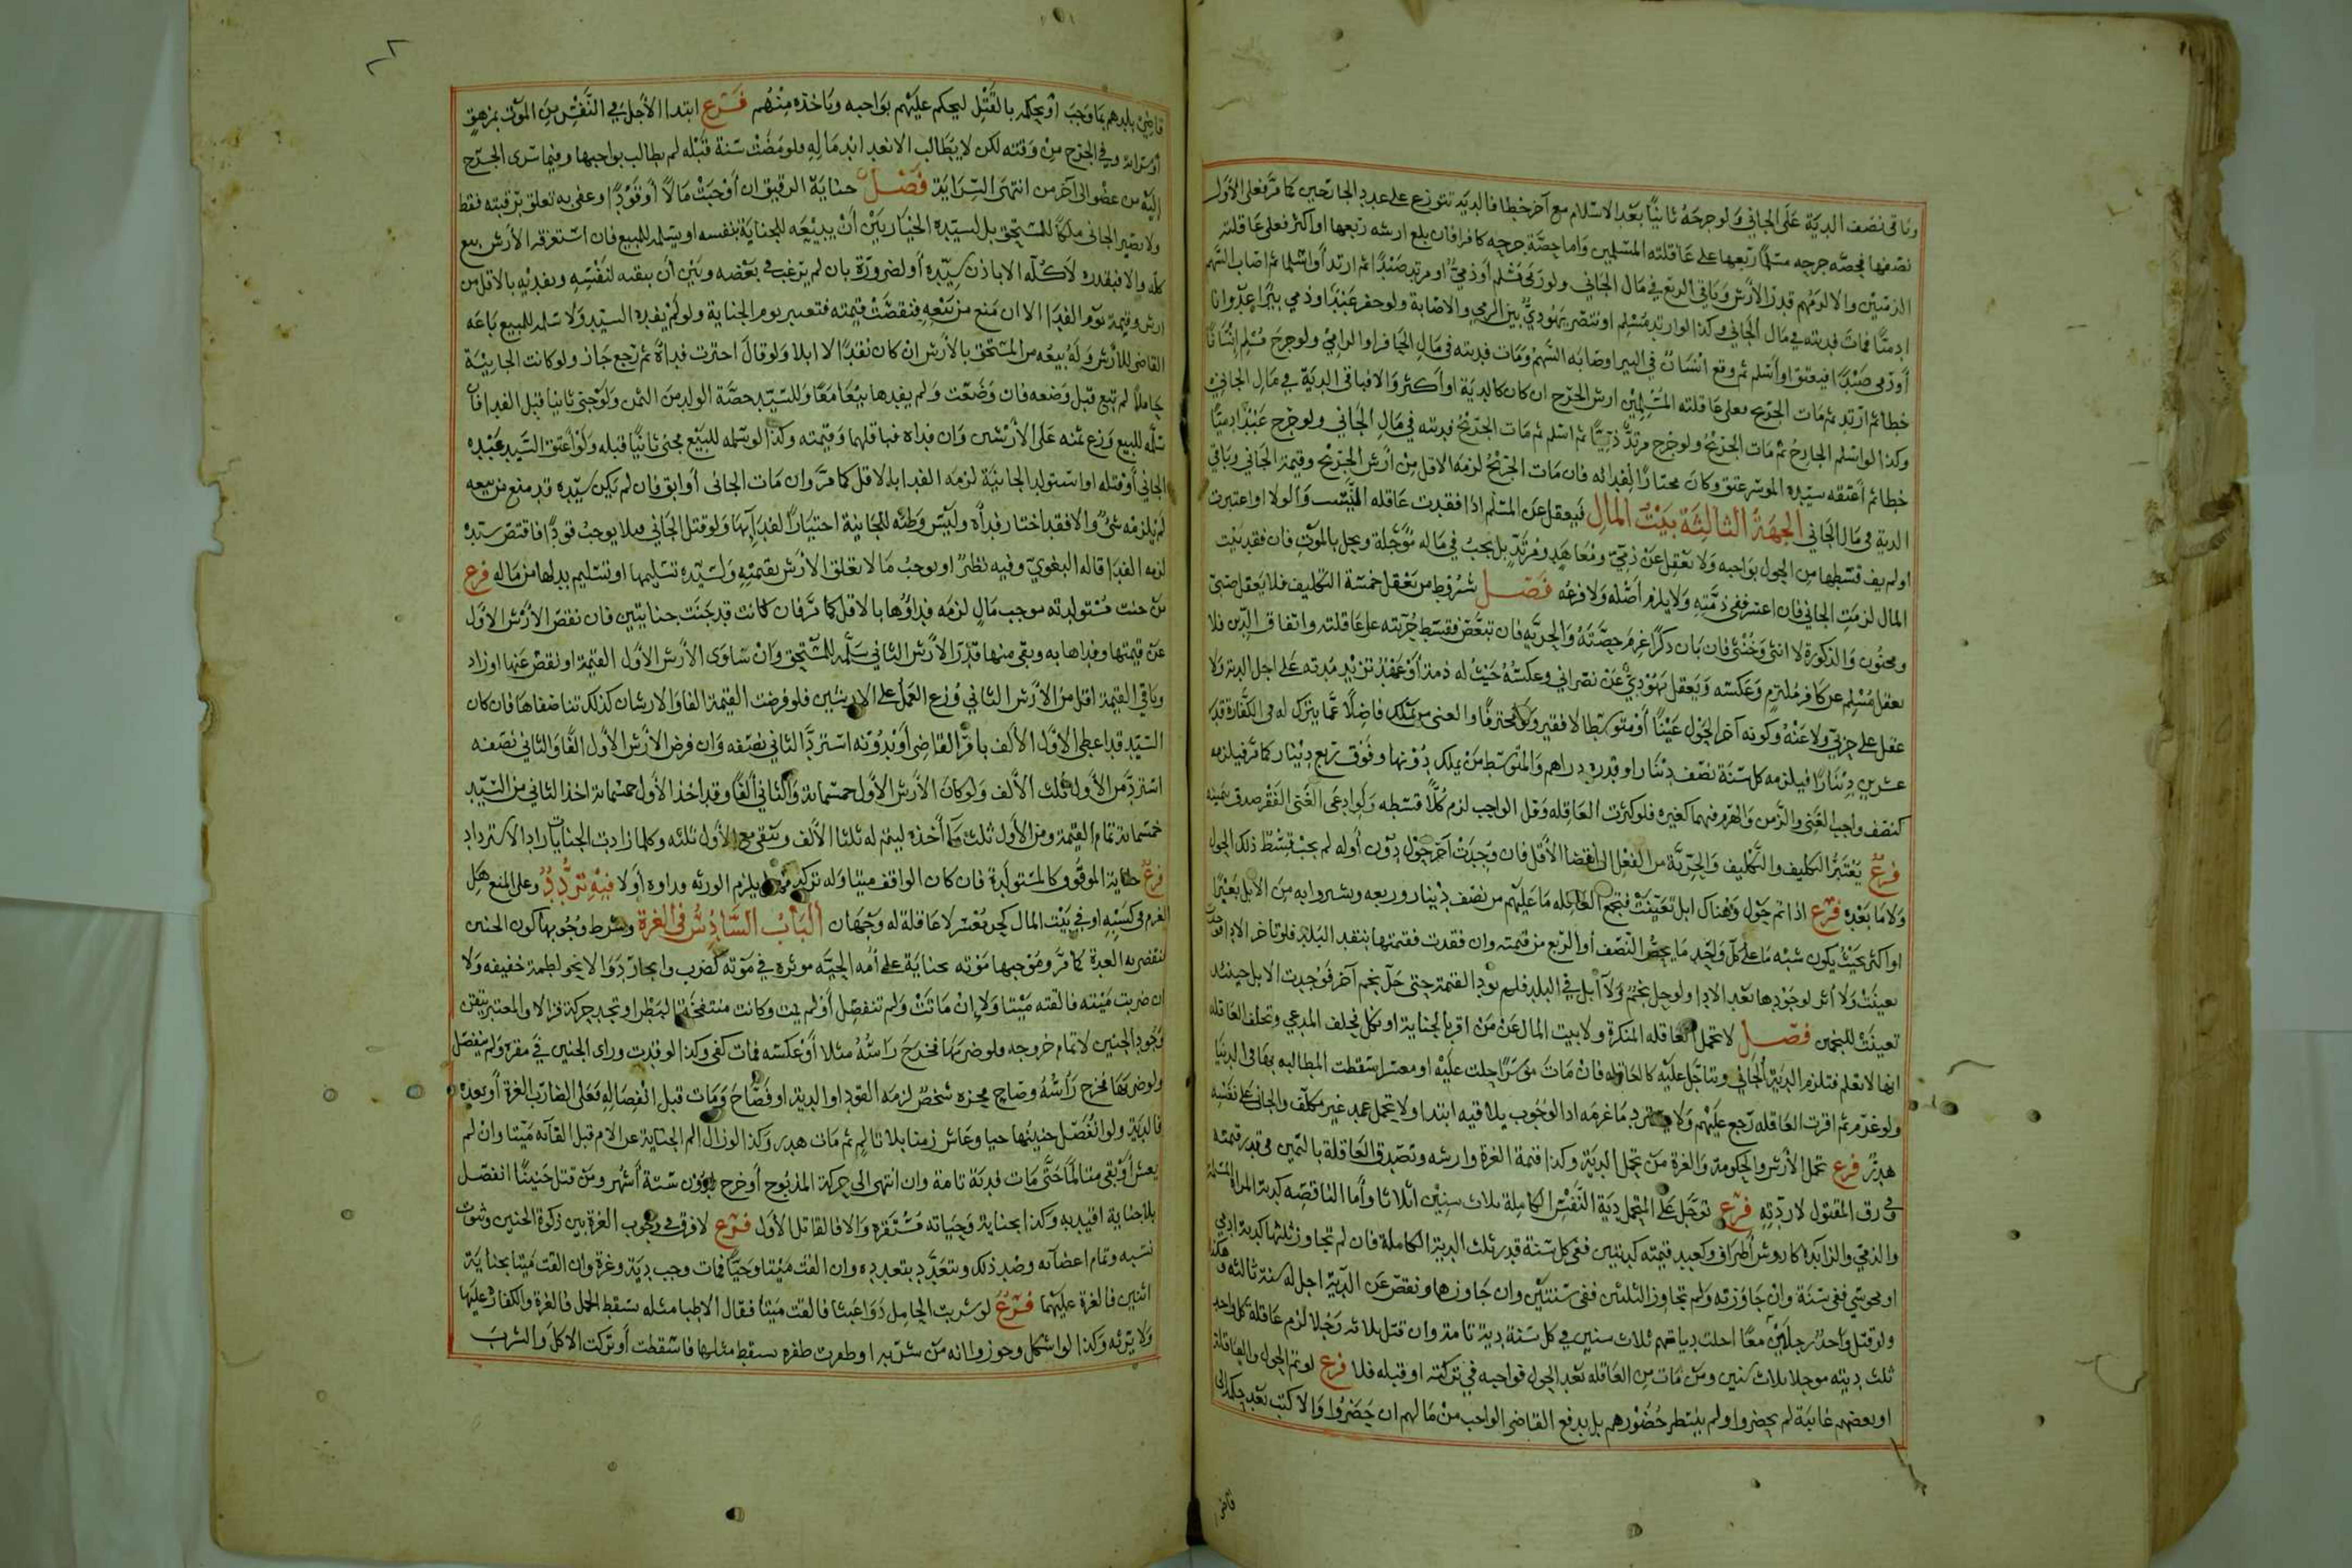 وباقي نصف الدية على الجاني ولو جرحه ثانيا بعد الاسلام مع آخر خطا فالدية تتوزع على عدد الجارحين كما مر فعلى الأول
نصفها فحصه جرحه مسلما ربعها على عاقلته المسلمين واما حصة جرحه كافرا فان بلغ ارشه ربعها او اكثر فعلى عاقلته
الذميين والا لزمهم قدر الأرش وباقي الربع في مال الجاني ولو رمى مسلم أو ذمي او مرتد صيدا ثم ارتد أو اسلما ثم اصاب السهم
ادميا فمات فديته في مال الجاني وكذا لو ارتد مسلم او تنصر يهودي بين الرمي والاصابة ولو حفر عبد او ذمي بئرا عدوانا
أو رمى صيدا فعتق او أسلم ثم وقع انسان في البير او صابه السهم ومات فديته في مال الحافر او الرامي ولو جرح مسلم انسانا
خطا ثم ارتد ثم مات الجريح فعلى عاقلته المسلمين ارش الجرح ان كان كالدية او اكثر والا فباقي الدية في مال الجاني
وكذا لو اسلم الجارح ثم مات الجريح ولو جرح مرتد ذميا ثم اسلم ثم مات الجريح فديته في مال الجاني ولو جرح عبد ادميا
خطا ثم أعتقه سيده الموسر عتق وكان مختارا لفدائه فان مات الجريح لزمه الاقل من أرش الجريح وقيمة الجاني وباقي
الدية في مال الجاني الجهة الثالثة بيت المال فيعقل عن المسلم اذا فقدت عاقله النسب والولا او اعتبرت
او لم يف قسطها من الحول بواجبه ولا تعقل عن ذمي ومعاهد ومرتد بل يجب في ماله مؤجلة ويحل بالموت فان فقد بيت
المال لزمت الجاني فان اعسر ففي ذمته ولا يلزم أصله ولا فرعه فصل شروط من يعقل خمسة التكليف فلا يعقل صبي
ومجنون والذكورة لا انثى وخنثى فان بان ذكرا غرم حصته والحرية فان تبعض فقسط حريته على عاقلته واتفاق الدين فلا
يعقل مسلم عن كافر ملتزم وعكسه ويعقل يهودي عن نصراني وعكسه حيث له ذمة أو عهد تزيد مدته على اجل الدية ولا
عقل على حربي ولا عنه وكونه آخر الحول غنيا أو متوسطا لا فقير ولو محترفا والغنى من يملك فاضلا عما يترك له في الكفارة قدر
عشرين دينارا فيلزمه كل سنة نصف دينار او قدره دراهم والمتوسط من يملك دونها وفوق ربع دينار كما مر فيلزمه
كنصف واجب الغني والزمن والهرم فيهما كغيره فلو كثرت العاقله وقل الواجب لزم كلا قسطه ولو ادعى الغني الفقر صدق بيمينه
فرع يعتبر التكليف والتكليف والحرية من الفعل الى انقضا الأقل فان وجدت آخر حول دون أوله لم يجب قسط ذلك الحول
ولا ما بعده فرع اذا تم حول وهناك ابل تعينت فتجمع العاقله ما عليهم من نصف دينار وربعه ويشتروا به من الابل بعيرا
او اكثر بحيث يكون شبه ما على كل واحد ما يخص النصف أو الربع من قيمته وان فقدت فقيمتها بنقد البلد فلو تاخر الادا فوجدت
تعينت ولا اثر لوجودها بعد الادا ولو حل نجم ولا ابل في البلد فلم تود القيمة حتى حل نجم آخر فوجدت الابل حينئذ
تعينت للنجمين فصل لا تحمل العاقله المنكرة ولا بيت المال عن من اقر بالجناية او نكل فحلف المدعي وتحلف العاقله
انها لا تعلم فتلزم الدية الجاني وتتاجل عليه كالعاقله فان مات موسرا حلت عليه او معسرا سقطت المطالبه بها في الدنيا
ولو غرم ثم اقرت العاقله رجع عليهم ولا يسترد ما غرمه اذ الوجوب يلاقيه ابتدا ولا يحمل عمد غير مكلف والجاني على نفسه
هدر فرع تحمل الأرش والحكومة والغرة من تحمل الدية وكذا قيمة الغرة وارشه وتصدق العاقلة باليمين في قدر قيمته
وفي رق المقتول لا رديه فرع تؤجل على المتحمل دية النفس الكاملة ثلاث سنين اثلاثا واما الناقصه كدية المراة المسلمة
والذمي والزايدة كاروش أطراف وكعبيد قيمته كديتين ففي كل سنة قدر ثلث الدية الكاملة فان لم تجاوز ثلثها كدية ذمي
او مجوسي ففي سنة وان جاوزته ولم تجاوز الثلثين ففي سنتين وان جاوزها ونقص عن الدية اجل له سنة ثالثه وهكذا
ولو قتل واحد رجلين معا احلت دياتهم ثلاث سنين في كل سنة دية تامة وان قتل ثلاثه رجلا لزم عاقلة كل واحد
ثلث ديته موجلا ثلاث سنين ومن مات من العاقله بعد الحول فواجبه في تركته او قبله فلا فرع لو تم الحول والعاقلة
او بعضهم غايبة لم يحضروا ولم ينتظر حضورهم بل يدفع القاضي الواجب من مالهم ان حضروا والا كتب بعد حكمه الى
قاضي
قاضي بلدهم بما وجب او يحكم بالقتل ليحكم عليهم بواجبه وياخذه منهم فرع ابتدا الأجل في النفس من الموت بمزهق
أو سراية وفي الجرح من وقته لكن لا يطالب الا بعد اندماله فلو مضت سنة قبله لم يطالب بواجبها وفيما سرى الجرح
اليه من عضو الى آخر من انتهى السراية فصل جناية الرقيق ان أوجبت مالا أو قودا وعفى به تعلق برقبته فقط
ولا يصير الجاني ملكا للمستحق بل لسيده الخيار بين أن يبيعه للجناية بنفسه او يسلمه للمبيع فان استغرقه الأرش بيع
كله والا فبقدره لا كله الا باذن سيده أو لضرورة بان لم يرغب في بعضه وبين أن يبقيه لنفسه ويفديه بالاقل من
ارش وقيمة يوم الفدا الا ان منع من بيعه فنقصت قيمته فتعتبر يوم الجناية ولو لم يفده السيد ولا سلمه للمبيع باعه
القاضي للأرش وله بيعه من المستحق بالأرش ان كان نقدا لا ابلا ولو قال اخترت فداه ثم رجع جاز ولو كانت الجانية
حاملا لم تبع قبل وضعه فان وضعت ولم يفدها بيعا معا وللسيد حصة الولد من الثمن ولو جنى ثانيا قبل الفدا فان
سلمه للبيع وزع ثمنه على الأرشين وان فداه فباقلهما وقيمته وكذا لو سلمه للبيع فجنى ثانيا قبله ولو أعتق السيد عبده
الجاني أو قتله او استولد الجانية لزمه الفدا بالاقل كما مر وان مات الجاني أو ابق فان لم يكن سيده قد منع من بيعه
لم يلزمه شئ والا فقد اختار فداه وليس وطئه للجانية اختيارا لفدائها ولو قتل الجاني فيلا يوجب قودا فاقتص سيده
لزمه الفدا قاله البغوي وفيه نظر او يوجب مالا تعلق الأرش بقيمته ولسيده تسليمها او تسليم بدلها من ماله فرع
من جنت مستولدته موجب مال لزمه فداؤها بالاقل كما مر فان كانت قد جنت جنايتين فان نقص الأرش الأول
عن قيمتها وفداها به وبقي منها قدر الأرش الثاني سلمه للمستحق وان ساوى الأرش الأول القيمة او نقص عنها او زاد
وباقي القيمة اقل من الأرش الثاني وزع العمل على الارشين فلو فرضت القيمة الفا والارشان كذلك تناصفاها فان كان
السيد قد اعطى الأول الألف بامر القاضي أو بدونه استرد الثاني نصفه وان فرض الأرش الأول ألفا والثاني نصفه
استرد من الأول ثلث الألف ولو كان الأرش الأول خمسمائة والثاني ألفا وقد اخذ الأول خمسمائة اخذ الثاني من السيد
خمسمائة تمام القيمة ومن الأول ثلث ما أخذه ليتم له ثلثا الألف ويبقى مع الأول ثلثه وكلما زادت الجنايات زاد الاسترداد
فرع جناية الموقوف كالمستولدة فان كان الواقف ميتا وله تركة يلزم الورثه فداوه أو لا فيه تردد وعلى المنع هل
الغرم في كسبه او في بيت المال كحر معسر لا عاقلة له وجهان الباب السادس في الغرة وشرط وجوبها كون الجنين
تنقضي به العدة كما مر وموجبها موته بجناية على أمه الحيه موثره في موته كضرب وايجار دوا لا نحو لطمة خفيفه ولا
ان ضربت ميته فالقته ميتا ولا إن ماتت ولم تنفصل أو لم يمت وكانت منتفخة البطن او تجد حركة فزالا والمعتبر تيقن
وجود الجنين لا تمام خروجه فلو ضربها فخرج راسه مثلا أو عكسه فمات كفى وكذا لو قدت وراى الجنين في مقره ولم ينفصل
ولو ضربها فخرج رأسه وصاح فحزه شخص لزمه القود او الدية او فصاح ومات قبل انفصاله فعلى الضارب الغرة أو بعده
فالدية ولو انفصل جنينها حيا وعاش زمنا بلا تالم ثم مات هدر وكذا لو زال الم الجناية عن الام قبل القآئه ميتا وان لم
يعش أو بقي متالما حتى مات فدية تامة وان انتهى الى حركة المذبوح أو خرج لدون ستة أشهر ومن قتل جنينا انفصل
بلا جناية اقيد به وكذا بجناية وحياته مستقره والا فالقاتل الأول فرع لا فرق في وجوب الغرة بين ذكورة الجنين وثبوت
نسبه وتمام اعضائه وضد ذلك وتتعدد بتعدده وان القت ميتا وحيا فمات وجب دية وغرة وان القت ميتا بجناية
اثنين فالغرة عليهما فرع لو شربت الحامل دوا عبثا فالقت ميتا فقال الاطبا مثله يسقط الحمل فالغرة والكفارة عليها
ولا ترثه وكذا لو اشكل وجوزوا انه من شربه او طفرت طفره يسقط مثلها فاسقطت أو تركت الاكل والشرب